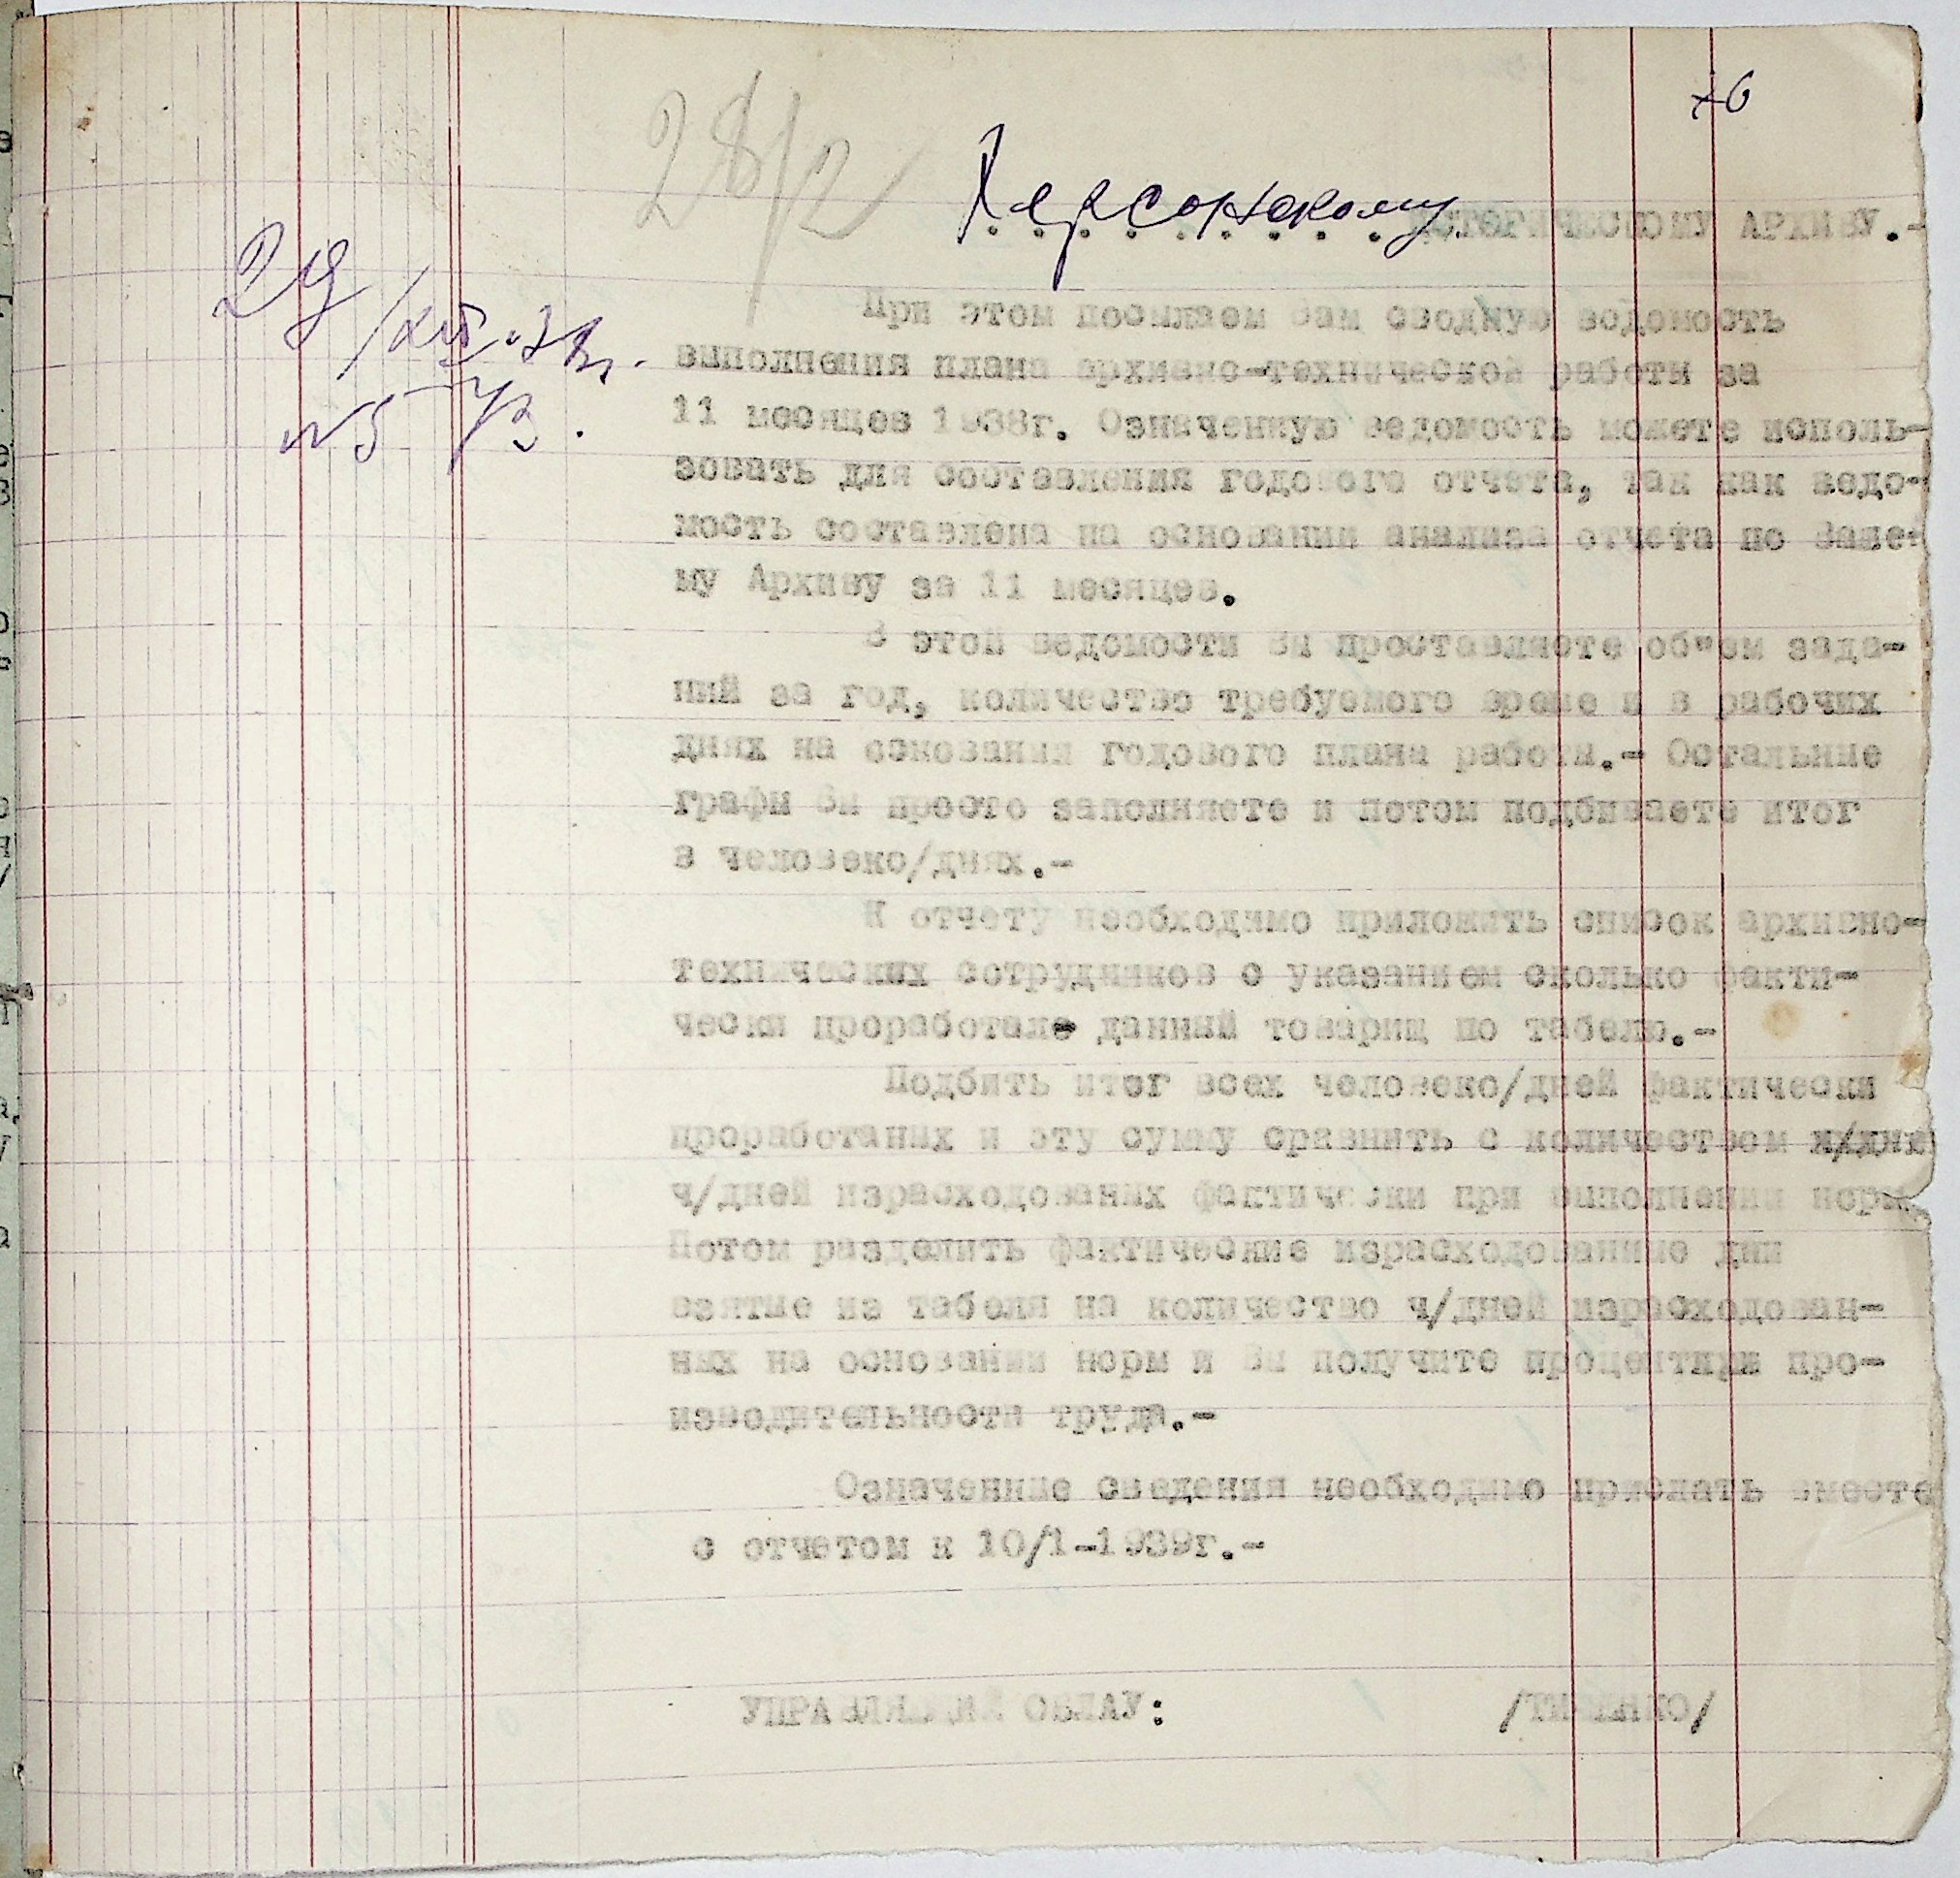 76
28/2
Херсонскому ИСТОРИЧЕСКОМУ АРХИВУ.-
29/XII-38г.
№573.
При этом посылаем Вам сводную ведомость
выполнения плана архивно-технической работы за
11 месяцев 1938г. Означенную ведомость можете исполь-
зовать для составления годового отчета, так как ведо-
мость составлена на основании анализа отчета по Ваше-
му Архиву за 11 месяцев.
В этой ведомости Вы проставляете об"ем зада-
ний за год, количество требуемого време и в рабочих
днях на основании годового плана работы.- Остальные
графы Вы просто заполняете и потом подбиваете итог
в человеко/днях.-
К отчету необходимо приложить список архивно-
технических сотрудников с указанием сколько факти-
чески проработал данный товарищ по табелю.-
Подбить итог всех человеко/дней фактически
проработаных и эту сумму сравнить с количеством
ч/дней израсходованых фактически при выполнении норм
Потом разделить фактические израсходованные дни
взятые из табеля на количество ч/дней израсходован-
ных на основании норм и Вы получите процентную про-
изводительности труда.-
Означенные сведения необходимо прислать вместе
с отчетом к 10/1-1939г.-
УПРАВЛЯЮЩИЙ ОБЛАУ: